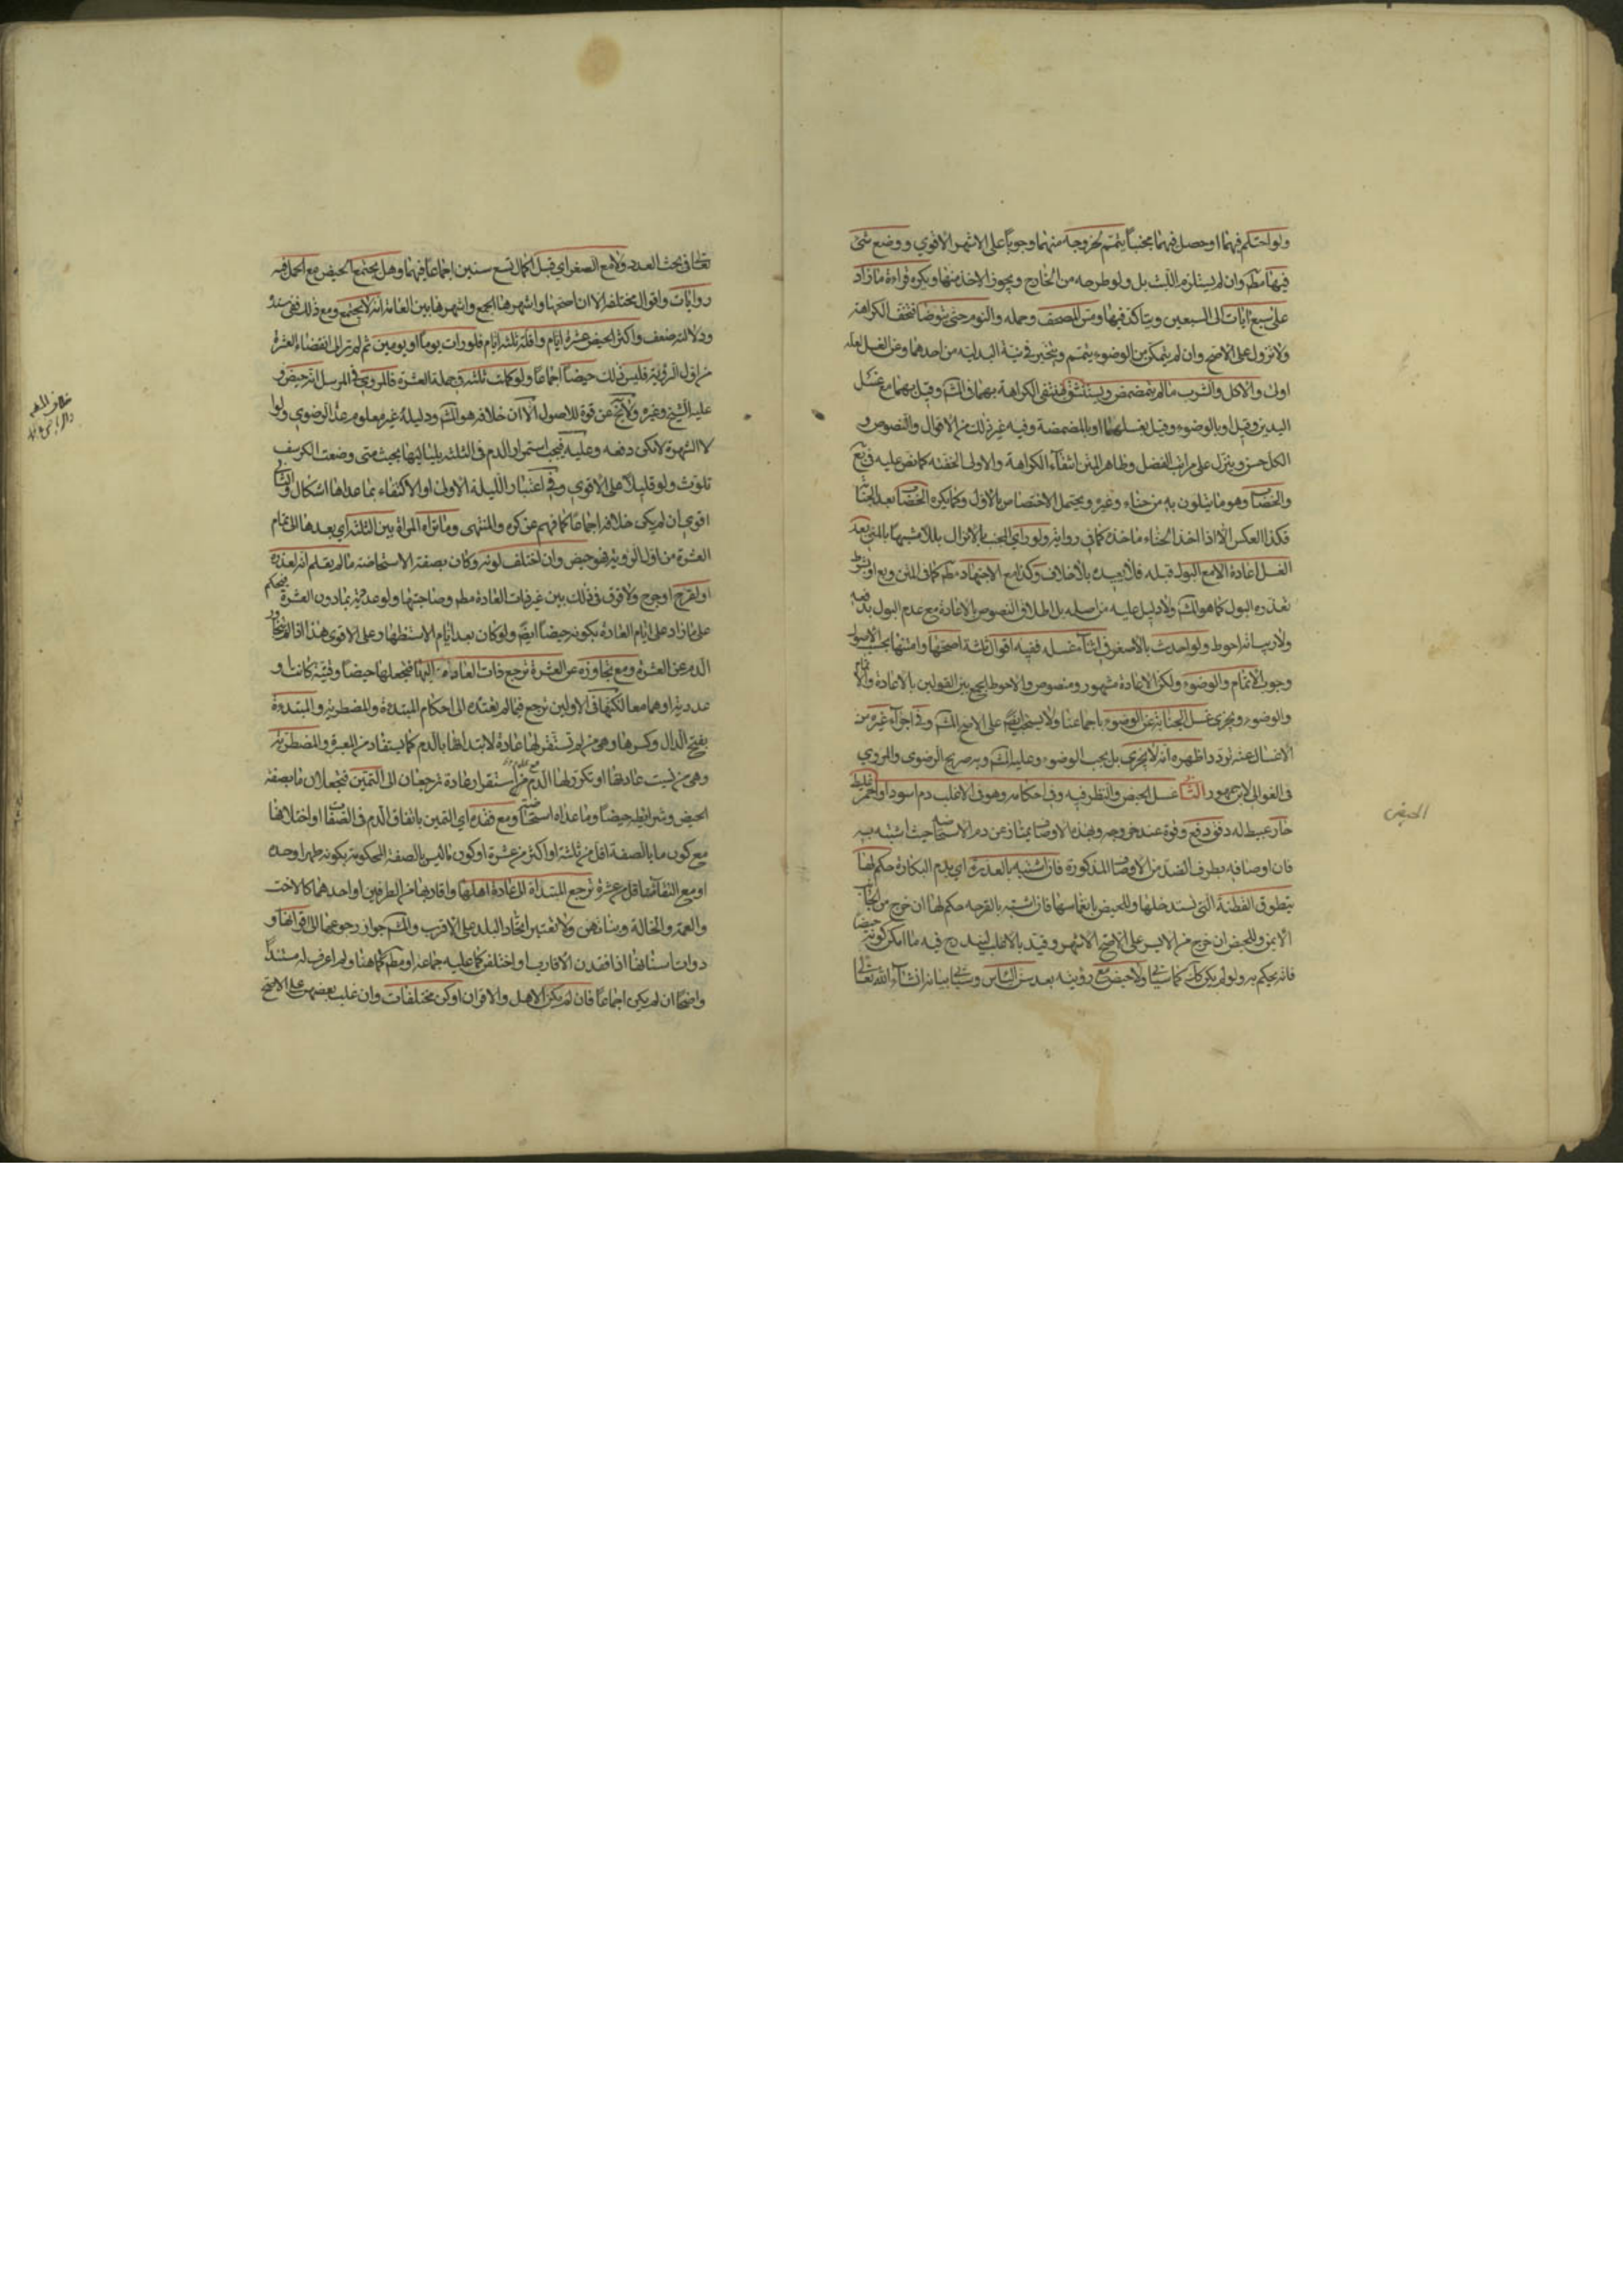 ولو احتلم فيهما او حصل فيهما مجنباً يتمم لخروجه منهما وجوباً على الاشهر الاقوي ووضع شئ
فيها مطلم وان لم يستلزم اللبث بل ولو طرحه من الخارج ويجوز الاخذ منها ويكره قراءة ما زاد
على سبع ايات الى السبعين ويتاكد فيها ومس المصحف وحمله والنوم حتى يتوضأ فتخف الكراهة
ولا تزول على الاصح وان لم يتمكن من الوضوء يتيمم ويتخير في نية البدلية من احدهما وعن الغسل لعله
اولى والاكل والشرب ما لم يتمضمض ويستنشق فتنتفي الكراهة بهما وقيل بهما مع غسل
اليدين وقيل او بالوضوء وقيل بغسلهما او بالمضمضة وفيه غير ذلك من الاقوال والنصوص و
الكل حسن وينزل على مراتب الفضل وظاهر المتن انتفاء الكراهة والاولى الخفة كما نص عليه في يع
والخضاب وهو ما يتلون به من حناء وغيره ويحتمل الاختصاص بالاول وكما يكره الخضاب بعد الجنابة
فكذا العكس الا اذا اخذ الحناء ماخذه كما في رواية ولو رأى المجنب بالانزال بللا مشتبها بالمني بعد
الغسل اعادة الا مع البول قبله فلا يعيده بلا خلاف وكذا مع الاجتهاد مطلم كما في المتن ويع او بشرط
تعذره البول كما هو لك ولا دليل عليه من اصله بل اطلاق النصوص بالاعادة مع عدم البول يدفعه
ولا ريب انه احوط ولو احدث بالاصغر في اثناء غسله ففيه اقوال ثلثة اصحها واشهرها بحسب الاصول
وجوب الاتمام والوضوء ولكن الاعادة مشهور ومنصوص والاحوط الجمع بين القولين بالاعادة والاتمام
والوضوء ويجزي غسل الجنابة عن الوضوء باجماعنا ولا يستحب ايضم على الاصح لك وفي اجزاء غيره من
الاغسال عنه تردد اظهره انه لا يجزي بل يجب الوضوء وعليه لك وبه صريح الرضوي والمروي
في الغوالي لابن جمهور الثاني غسل الحيض والنظر فيه وفي احكامه وهو في الاغلب دم اسود او احمر غليظ
حار عبيط له دفق ودفع وقوة عند خروجه وبهذه الاوصاف يمتاز عن دم الاستحاضة حيث اشتبه به
فان اوصافه بطرف الضد من الاوصاف المذكورة فان اشتبه بالعذرة اي بدم البكارة حكم لها
بتطوق القطنة التي تستدخلها وللحيض بانغماسها فان اشتبه بالقرحة حكم لها ان خرج من الجانب
الايمن وللحيض ان خرج من الايسر على الاصح الاشهر وقيد بالاغلب ليندرج فيه ما امكن كونه حيضا
فانه يحكم به ولو لم يكن كذلك كما سياتي ولا حيض مع رؤيته بعد سن الياس وسياتي بيانه انشاء الله تعالى
الحيض
تعالى في بحث العدد ولا مع الصغر اي قبل اكمال تسع سنين اجماعاً فيهما وهل يجتمع الحيض مع الحمل فيه
روايات واقوال مختلفة الا ان اصحها واشهرها الجمع واشهرها بين العامة انه لا يجتمع ومع ذلك ففي سنده
ودلالته ضعف واكثر الحيض عشرة ايام واقله ثلثة ايام فلو رات يوماً او يومين ثم لم تر الى انقضاء العشرة
من اول الرؤية فليس ذلك حيضاً اجماعاً ولو كملت ثلثة في جملة العشرة فالمروي في المرسل انه حيض و
عليه الشيخ وغيره ولا يخ عن قوة للاصول الا ان خلافه هو لك ودليله غير معلوم عدا الرضوي ولو
لا الشهرة لامكن دفعه وعليه فيجب استمرار الدم في الثلثة بلياليها بحيث متى وضعت الكرسف
تلوث ولو قليلا على الاقوي وفي اعتبار الليلة الاولى او الاكتفاء بما عداها اشكال والثاني
اقوى ان لم يكن خلافه اجماعاً كما فهم عن كره والمنتهى وما تراه المراة بين الثلثة اي بعدها الى تمام
العشرة من اول الرؤية فهو حيض وان اختلف لونه وكان بصفة الاستحاضة ما لم يعلم انه لعذرة
او لقرح او جرح ولا فرق في ذلك بين غير ذات العادة مطلم وصاحبتها ولو عدديته بما دون العشرة فيحكم
على ما زاد على ايام العادة بكونه حيضاً ايضم ولو كان بعد ايام الاستظهار وعلى الاقوى هذا اذا لم يتجاوز
الدم عن العشرة ومع تجاوزه عن العشرة ترجع ذات العادة اليها فتجعلها حيضا وقتية كانت او
عددية او هما معا لكنها في الاولين ترجع فيما لم تعتده الى احكام المبتدءة والمضطربة والمبتدءة
بفتح الدال وكسرها وهي من لم تستقر لها عادة لابتدائها بالدم كما يستفاد من المعتبر والمضطربة
وهي من نسيت عادتها او تكرر لها الدم مع عدم استقرار عادة ترجعان الى التميز فتجعلان ما بصفة
الحيض وشرائطه حيضاً وما عداه استحاضة ومع فقده اي التميز باتفاق الدم في الصفات او اختلافها
مع كون ما بالصفة اقل من ثلثة او اكثر من عشرة او كون ما ليس بالصفة المحكوم بكونه طهرا وحده
او مع النقاء اقل من عشرة ترجع المبتداة الى عادة اهلها واقاربها من الطرفين او احدهما كالاخت
والعمة والخالة وبناتهن ولا تعتبر اتحاد البلد على الاقرب ولك جواز رجوعها الى اقرانها و
ذوات اسنانها اذا فقدن الاقارب او اختلفن كما عليه جماعة او مطلم كما هنا ولم اعرف له مستنداً
واضحا ان لم يكن اجماعاً فان لم يكن الاهل والاقران او كن مختلفات وان غلب بعضهن على الاصح